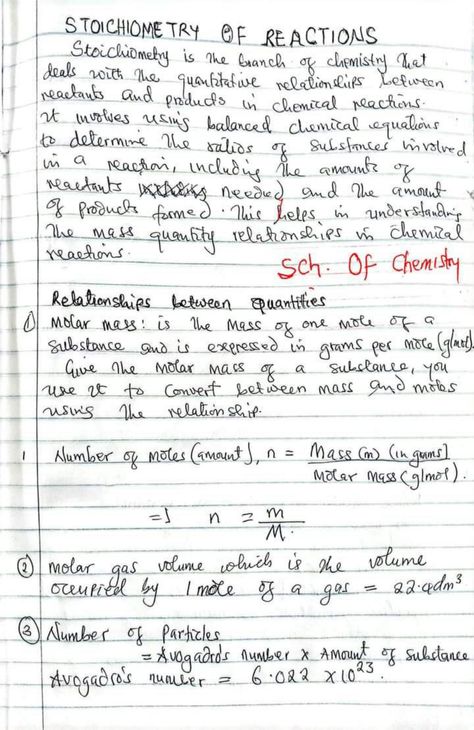 STOICHIOMETRY OF REACTIONS
Stoichiometry is the branch of chemistry that
deals with the quantitative relationships between
reactants and products in chemical reactions.
it involves using balanced chemical equations
to determine the ratios of substances involved
in a reaction, including the amounts of
reactants needed and the amount
of products formed. This helps in understanding
the mass quantity relationships in chemical
reactions.
Sch. Of Chemistry
Relationships between quantities
① Molar mass: is the mass of one mole of a
substance and is expressed in grams per mole (g/mol).
Give the molar mass of a substance, you
use it to convert between mass and mobs
using the relationship.
1 Number of moles (amount), n = Mass (m) (in grams)
Molar mass (g/mol).
=) n = m
M.
② molar gas volume which is the volume
occupied by 1 mole of a gas = 22.4dm³
③ Number of Particles
= Avogadro's number × Amount of substance
Avogadro's number = 6.022 × 10²³.